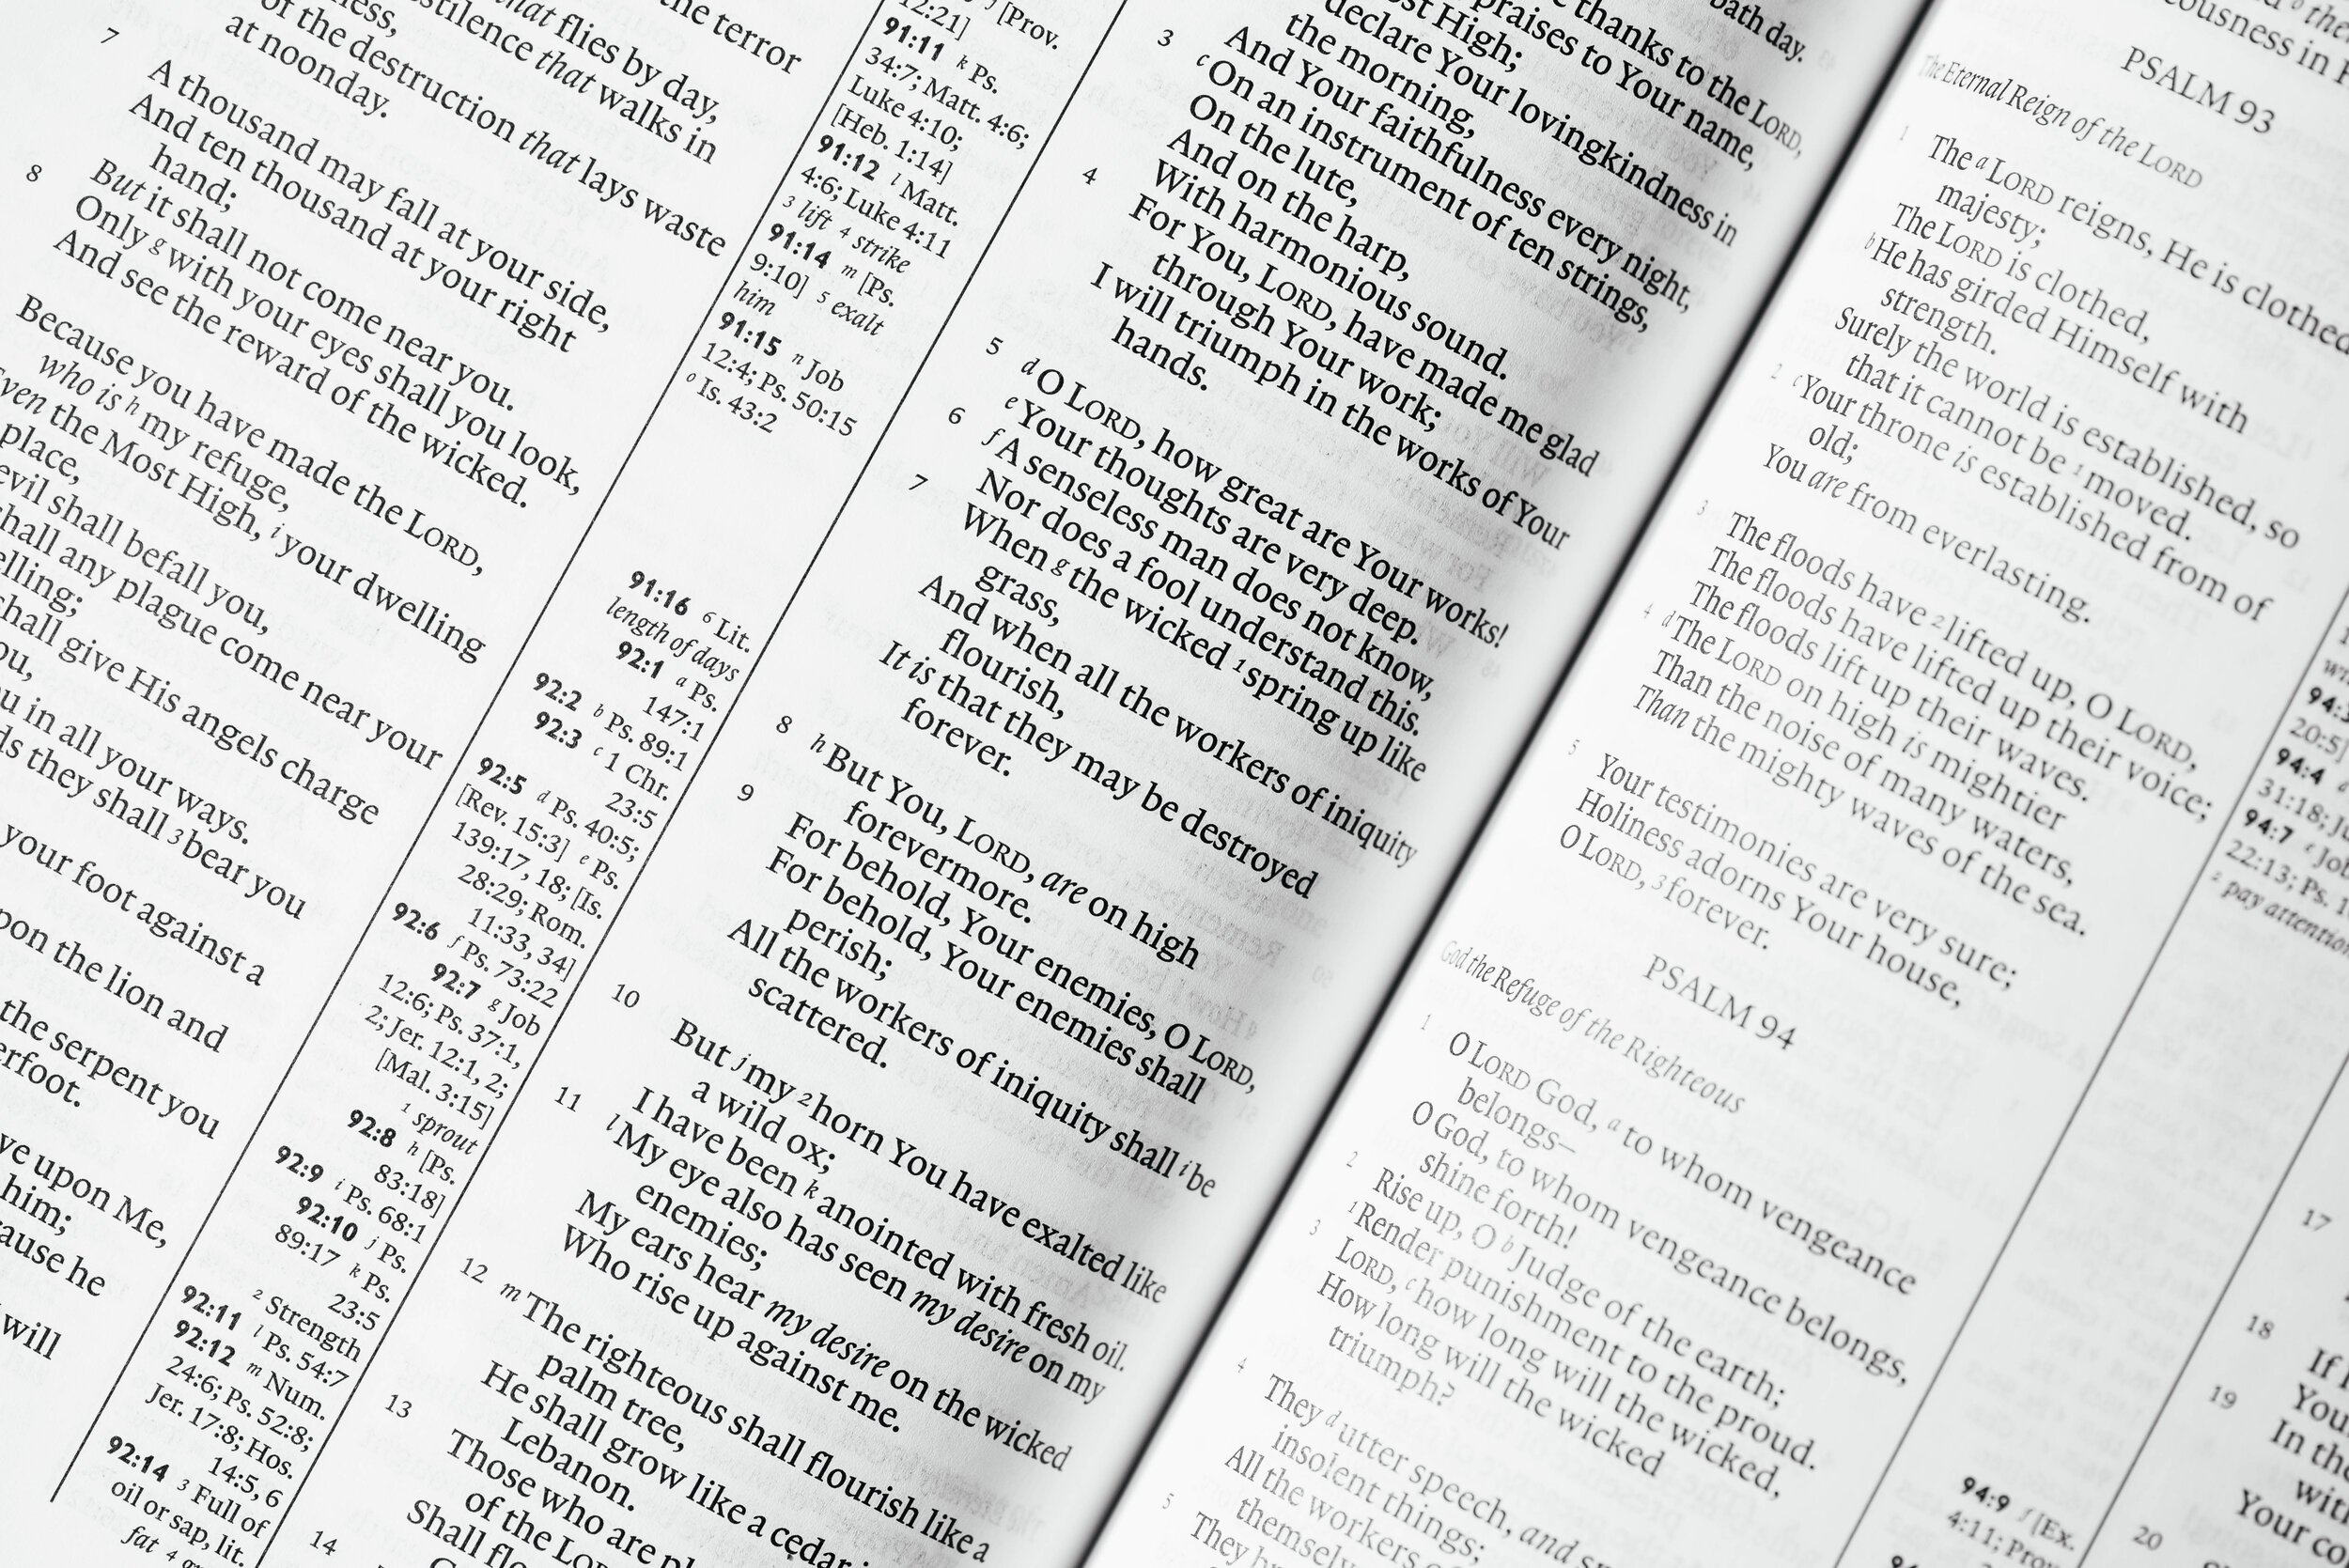 the terror
that flies by day,
stilence that walks in
of the destruction that lays waste
at noonday.
7 A thousand may fall at your side,
And ten thousand at your right
hand;
But it shall not come near you.
8 Only g with your eyes shall you look,
And see the reward of the wicked.
Because you have made the LORD,
who is h my refuge,
ven the Most High, i your dwelling
place,
evil shall befall you,
hall any plague come near your
elling;
shall give His angels charge
ou,
u in all your ways.
ds they shall 3 bear you
your foot against a
pon the lion and
the serpent you
erfoot.
ve upon Me,
him;
ause he
will
12:21] j [Prov.
91:11 k Ps.
34:7; Matt. 4:6;
Luke 4:10;
[Heb. 1:14]
91:12 l Matt.
4:6; Luke 4:11
3 lift 4 strike
91:14 m [Ps.
9:10] 5 exalt
him
91:15 n Job
12:4; Ps. 50:15
o Is. 43:2
91:16 6 Lit.
length of days
92:1 a Ps.
147:1
92:2 b Ps. 89:1
92:3 c 1 Chr.
23:5
92:5 d Ps. 40:5;
[Rev. 15:3] e Ps.
139:17, 18; [Is.
28:29; Rom.
11:33, 34]
92:6 f Ps. 73:22
92:7 g Job
12:6; Ps. 37:1,
2; Jer. 12:1, 2;
[Mal. 3:15]
1 sprout
92:8 h [Ps.
83:18]
92:9 i Ps. 68:1
92:10 j Ps.
89:17 k Ps.
23:5
2 Strength
92:11 l Ps. 54:7
92:12 m Num.
24:6; Ps. 52:8;
Jer. 17:8; Hos.
14:5, 6
92:14 3 Full of
oil or sap, lit.
fat 4
bath day.
thanks to the LORD,
praises to Your name,
ost High;
declare Your lovingkindness in
the morning,
And Your faithfulness every night,
3 c On an instrument of ten strings,
On the lute,
And on the harp,
With harmonious sound.
4 For You, LORD, have made me glad
through Your work;
I will triumph in the works of Your
hands.
5 d O LORD, how great are Your works!
e Your thoughts are very deep.
6 f A senseless man does not know,
Nor does a fool understand this.
7 When g the wicked 1 spring up like
grass,
And when all the workers of iniquity
flourish,
It is that they may be destroyed
forever.
8 h But You, LORD, are on high
forevermore.
9 For behold, Your enemies, O LORD,
For behold, Your enemies shall
perish;
All the workers of iniquity shall i be
scattered.
10 But j my 2 horn You have exalted like
a wild ox;
I have been k anointed with fresh oil.
11 l My eye also has seen my desire on my
enemies;
My ears hear my desire on the wicked
Who rise up against me.
12 m The righteous shall flourish like a
palm tree,
He shall grow like a cedar
Lebanon.
13 Those who are
of the LORD
Shall
14
ousness in
PSALM 93
The Eternal Reign of the LORD
1 The a LORD reigns, He is clothed
majesty;
The LORD is clothed,
b He has girded Himself with
strength.
Surely the world is established, so
that it cannot be 1 moved.
2 c Your throne is established from of
old;
You are from everlasting.
3 The floods have 2 lifted up, O LORD,
The floods have lifted up their voice;
The floods lift up their waves.
4 d The LORD on high is mightier
Than the noise of many waters,
Than the mighty waves of the sea.
5 Your testimonies are very sure;
Holiness adorns Your house,
O LORD, 3 forever.
PSALM 94
God the Refuge of the Righteous
1 O LORD God, a to whom vengeance
belongs—
O God, to whom vengeance belongs,
shine forth!
2 Rise up, O b Judge of the earth;
1 Render punishment to the proud.
3 LORD, c how long will the wicked,
How long will the wicked
triumph?
4 They d utter speech, and
insolent things;
All the workers
5 They
94:4
31:18;
94:7 Job
22:13; Ps.
2 pay attention
94:9 f [Ex.
4:11; Prov.
17
18
If
19 You
In the
20 Your